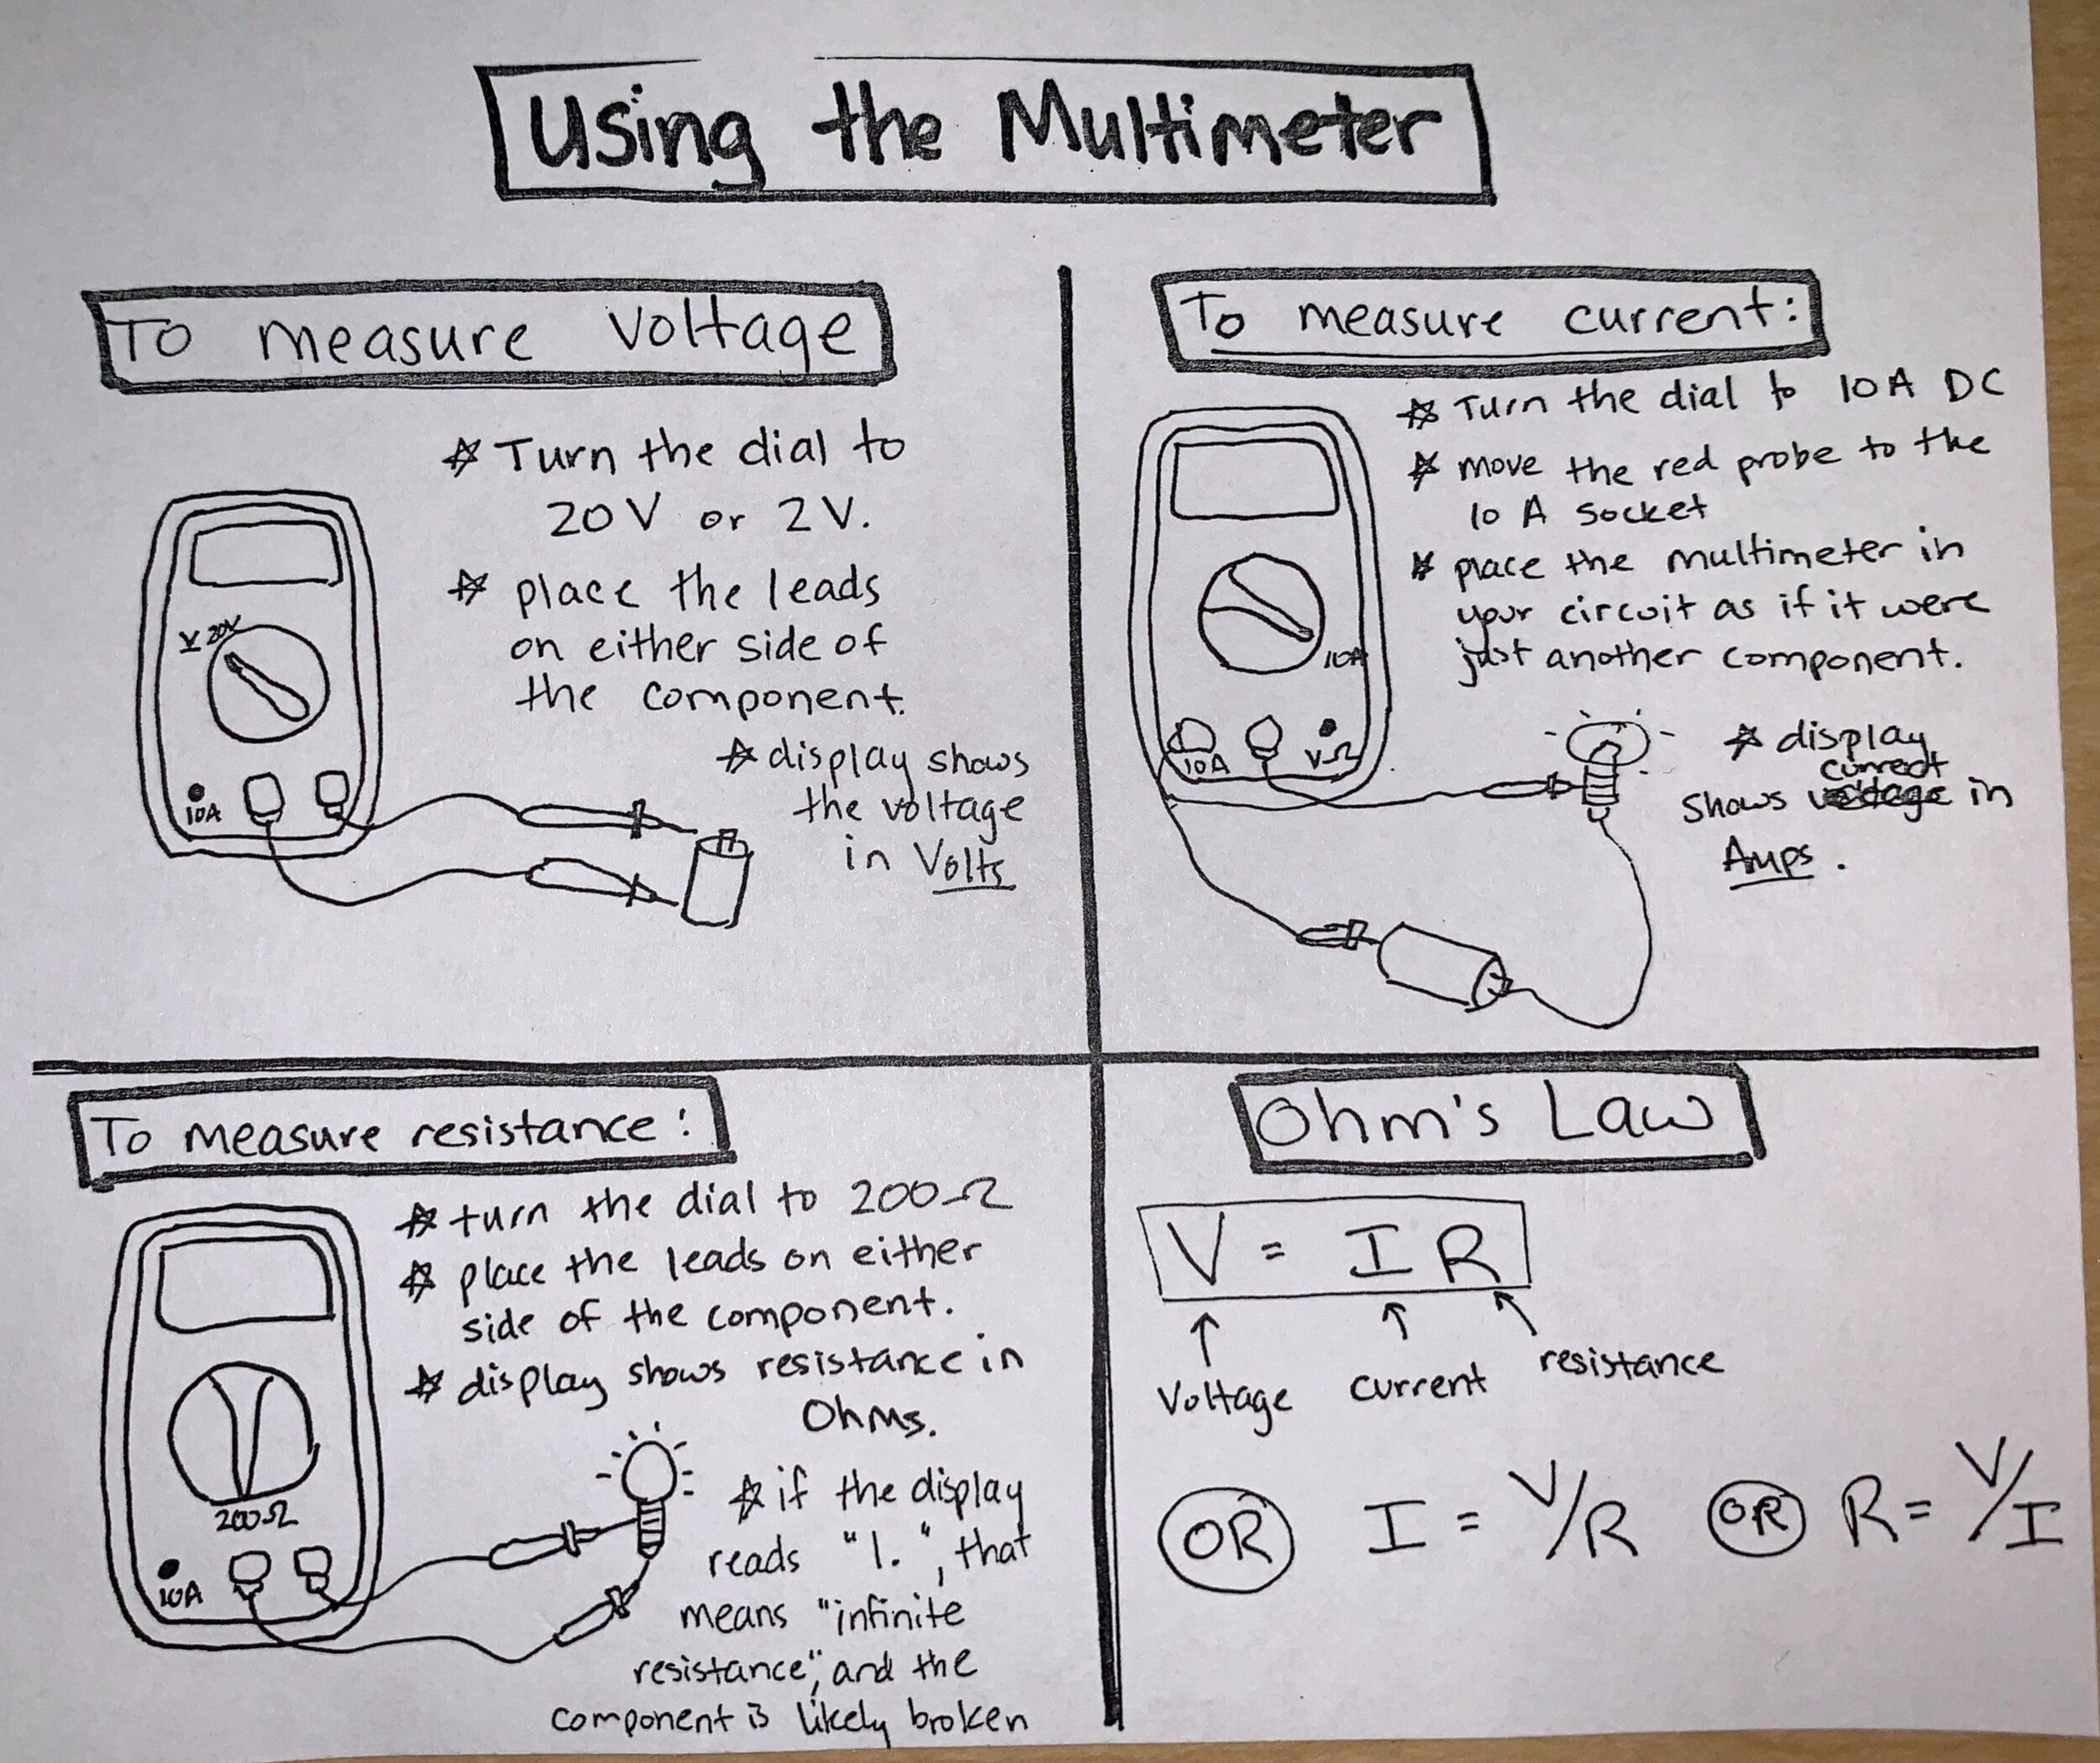 Using the Multimeter
To measure Voltage
☆ Turn the dial to
20V or 2V.
☆ place the leads
on either side of
the component.
☆ display shows
the voltage
in Volts
V 20V
10A
To measure current:
☆ Turn the dial to 10A DC
☆ move the red probe to the
10 A socket
☆ place the multimeter in
your circuit as if it were
just another component.
☆ display
current
shows voltage in
Amps.
10A
10A
VΩ
To measure resistance:
☆ turn the dial to 200Ω
☆ place the leads on either
side of the component.
☆ display shows resistance in
Ohms.
☆ if the display
reads "1.", that
means "infinite
resistance", and the
component is likely broken
200Ω
10A
Ohm's Law
V = IR
Voltage current resistance
OR I = V/R OR R = V/I